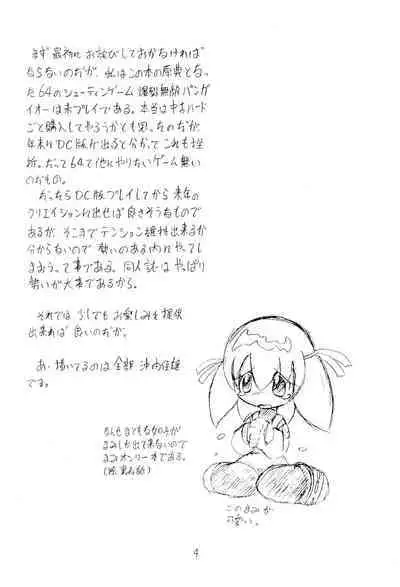 まず最初に お詫びしておかなければ
ならないのだが、私はこの本の原典となっ
た64のシューティングゲーム 爆裂無敵バンガ
イオーは未プレイである。本当は中古ハード
ごと購入してやろうかとも思ったのだが、
年末にDC版が出ると分かってこれも挫
折。だって64で他にやりたいゲーム無い
のだもの。
だったらDC版プレイしてから来年の
クリエイションに出せば良さそうなもので
あるが、そこまでテンション維持出来るか
分からないので 勢いのある内にやってし
まおうって事である。同人誌はやっぱり
勢いが大事であるから。
それでは 少しでもお愛しみを提供
出来れば良いのだが。
あ、描いてるのは全部
です。
なんせまともな女の子が
まみしか出て来ないので
まみオンリー本である。
このまみが
可愛い。
4